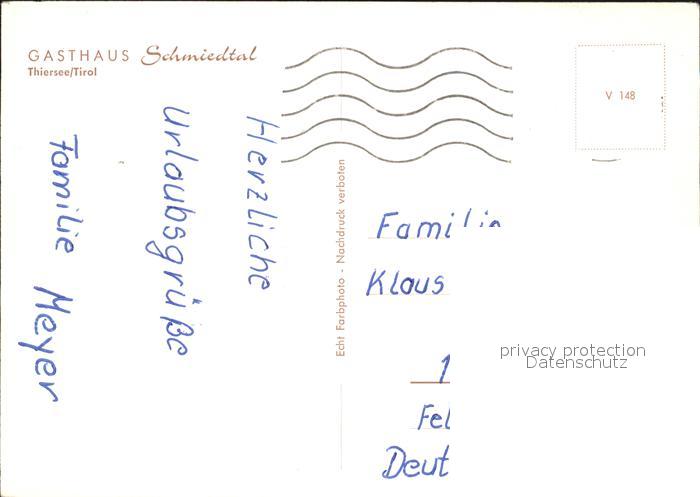 GASTHAUS Schmiedtal
Thiersee/Tirol
V 148
Herzliche
Urlaubsgrüße
Familie Meyer
Echt Farbphoto - Nachdruck verboten
Familie
Klaus
1
Fel
Deut
privacy protection
Datenschutz